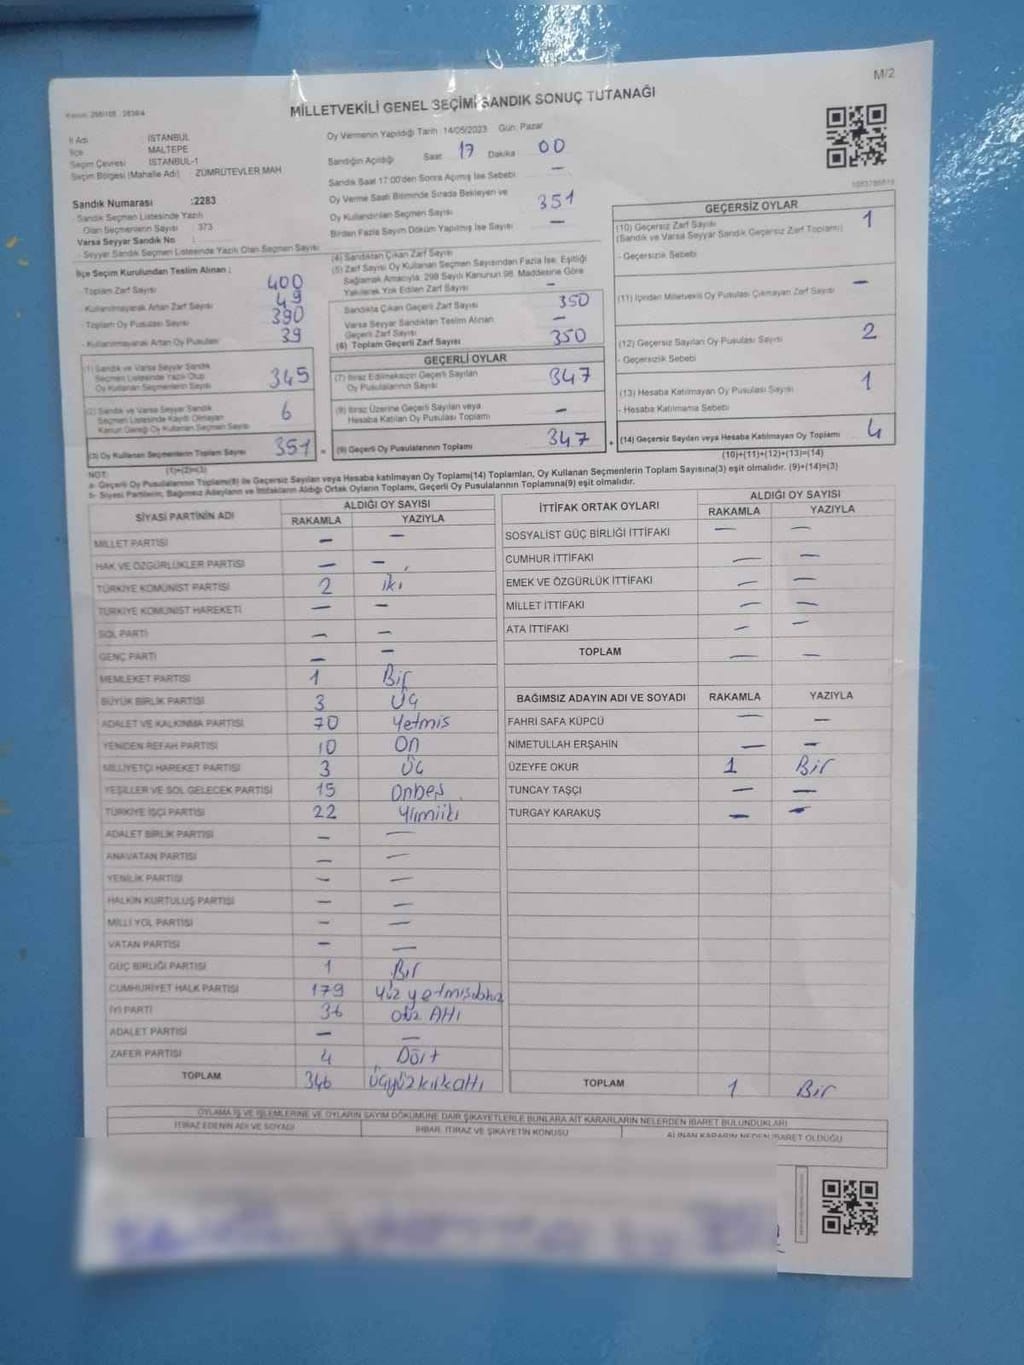 M/2
MİLLETVEKİLİ GENEL SEÇİMİ SANDIK SONUÇ TUTANAĞI
İl Adı : İSTANBUL
İlçe : MALTEPE
Seçim Çevresi : İSTANBUL-1
Seçim Bölgesi (Mahalle Adı) : ZÜMRÜTEVLER MAH
Sandık Numarası :2283
Sandık Seçmen Listesinde Yazılı
Olan Seçmenlerin Sayısı 373
Varsa Seyyar Sandık No :
- Seyyar Sandık Seçmen Listesinde Yazılı Olan Seçmen Sayısı
Oy Vermenin Yapıldığı Tarih 14/05/2023 Gün: Pazar
Sandığın Açıldığı Saat 17 Dakika 00
Sandık Saat 17:00'den Sonra Açılmış İse Sebebi —
Oy Verme Saati Bitiminde Sırada Bekleyen ve
Oy Kullandırılan Seçmen Sayısı 351
Birden Fazla Sayım Döküm Yapılmış İse Sayısı —
İlçe Seçim Kurulundan Teslim Alınan :
- Toplam Zarf Sayısı 400
- Kullanılmayarak Artan Zarf Sayısı 49
- Toplam Oy Pusulası Sayısı 390
- Kullanılmayarak Artan Oy Pusulası 39
(1) Sandık ve Varsa Seyyar Sandık
Seçmen Listesinde Yazılı Olup
Oy Kullanan Seçmenlerin Sayısı 345
(2) Sandık ve Varsa Seyyar Sandık
Seçmen Listesinde Kayıtlı Olmayan
Kanun Gereği Oy Kullanan Seçmen Sayısı 6
(3) Oy Kullanan Seçmenlerin Toplam Sayısı 351
(1)+(2)=(3)
(4) Sandıktan Çıkan Zarf Sayısı
(5) Zarf Sayısı Oy Kullanan Seçmen Sayısından Fazla İse, Eşitliği
Sağlamak Amacıyla, 298 Sayılı Kanunun 98. Maddesine Göre
Yakılarak Yok Edilen Zarf Sayısı —
Sandıkta Çıkan Geçerli Zarf Sayısı 350
Varsa Seyyar Sandıktan Teslim Alınan
Geçerli Zarf Sayısı —
(6) Toplam Geçerli Zarf Sayısı 350
GEÇERLİ OYLAR
(7) İtiraz Edilmeksizin Geçerli Sayılan
Oy Pusulalarının Sayısı 347
(8) İtiraz Üzerine Geçerli Sayılan veya
Hesaba Katılan Oy Pusulası Toplamı —
(9) Geçerli Oy Pusulalarının Toplamı 347
GEÇERSİZ OYLAR
(10) Geçersiz Zarf Sayısı 1
(Sandık ve Varsa Seyyar Sandık Geçersiz Zarf Toplamı)
- Geçersizlik Sebebi
(11) İçinden Milletvekili Oy Pusulası Çıkmayan Zarf Sayısı —
(12) Geçersiz Sayılan Oy Pusulası Sayısı 2
- Geçersizlik Sebebi
(13) Hesaba Katılmayan Oy Pusulası Sayısı 1
- Hesaba Katılmama Sebebi
(14) Geçersiz Sayılan veya Hesaba Katılmayan Oy Toplamı 4
(10)+(11)+(12)+(13)=(14)
NOT:
a- Geçerli Oy Pusulalarının Toplamı(9) ile Geçersiz Sayılan veya Hesaba katılmayan Oy Toplamı(14) Toplamları, Oy Kullanan Seçmenlerin Toplam Sayısına(3) eşit olmalıdır. (9)+(14)=(3)
b- Siyasi Partilerin, Bağımsız Adayların ve İttifakların Aldığı Ortak Oyların Toplamı, Geçerli Oy Pusulalarının Toplamına(9) eşit olmalıdır.
SİYASİ PARTİNİN ADI ALDIĞI OY SAYISI
RAKAMLA YAZIYLA
MİLLET PARTİSİ — —
HAK VE ÖZGÜRLÜKLER PARTİSİ — —
TÜRKİYE KOMÜNİST PARTİSİ 2 iki
TÜRKİYE KOMÜNİST HAREKETİ — —
SOL PARTİ — —
GENÇ PARTİ — —
MEMLEKET PARTİSİ 1 Bir
BÜYÜK BİRLİK PARTİSİ 3 Üç
ADALET VE KALKINMA PARTİSİ 70 Yetmis
YENİDEN REFAH PARTİSİ 10 On
MİLLİYETÇİ HAREKET PARTİSİ 3 Üç
YEŞİLLER VE SOL GELECEK PARTİSİ 15 Onbeş
TÜRKİYE İŞÇİ PARTİSİ 22
ADALET BİRLİK PARTİSİ — —
ANAVATAN PARTİSİ — —
YENİLİK PARTİSİ — —
HALKIN KURTULUŞ PARTİSİ — —
MİLLİ YOL PARTİSİ — —
VATAN PARTİSİ — —
GÜÇ BİRLİĞİ PARTİSİ 1 Bir
CUMHURİYET HALK PARTİSİ 179
İYİ PARTİ 36 otuz Altı
ADALET PARTİSİ — —
ZAFER PARTİSİ 4 Dört
TOPLAM 346 üçyüzkırkaltı
İTTİFAK ORTAK OYLARI ALDIĞI OY SAYISI
RAKAMLA YAZIYLA
SOSYALİST GÜÇ BİRLİĞİ İTTİFAKI — —
CUMHUR İTTİFAKI — —
EMEK VE ÖZGÜRLÜK İTTİFAKI — —
MİLLET İTTİFAKI — —
ATA İTTİFAKI — —
TOPLAM — —
BAĞIMSIZ ADAYIN ADI VE SOYADI RAKAMLA YAZIYLA
FAHRİ SAFA KÜPCÜ — —
NİMETULLAH ERŞAHİN — —
ÜZEYFE OKUR 1 Bir
TUNCAY TAŞÇI — —
TURGAY KARAKUŞ — —
TOPLAM 1 Bir
OYLAMA İŞ VE İŞLEMLERİNE VE OYLARIN SAYIM DÖKÜMÜNE DAİR ŞİKAYETLERLE BUNLARA AİT KARARLARIN NELERDEN İBARET BULUNDUKLARI
İTİRAZ EDENİN ADI VE SOYADI İHBAR, İTİRAZ VE ŞİKAYETİN KONUSU ALINAN KARARIN NEDEN İBARET OLDUĞU